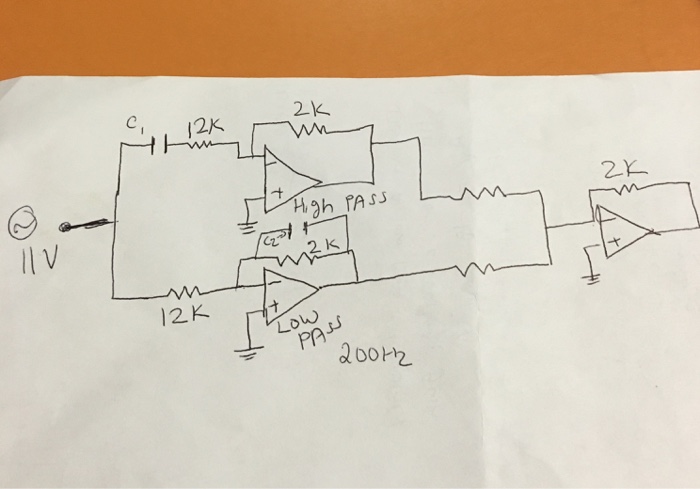 C1
12K
2K
2K
11V
High PASS
C2
2K
12K
LOW
PASS
200Hz